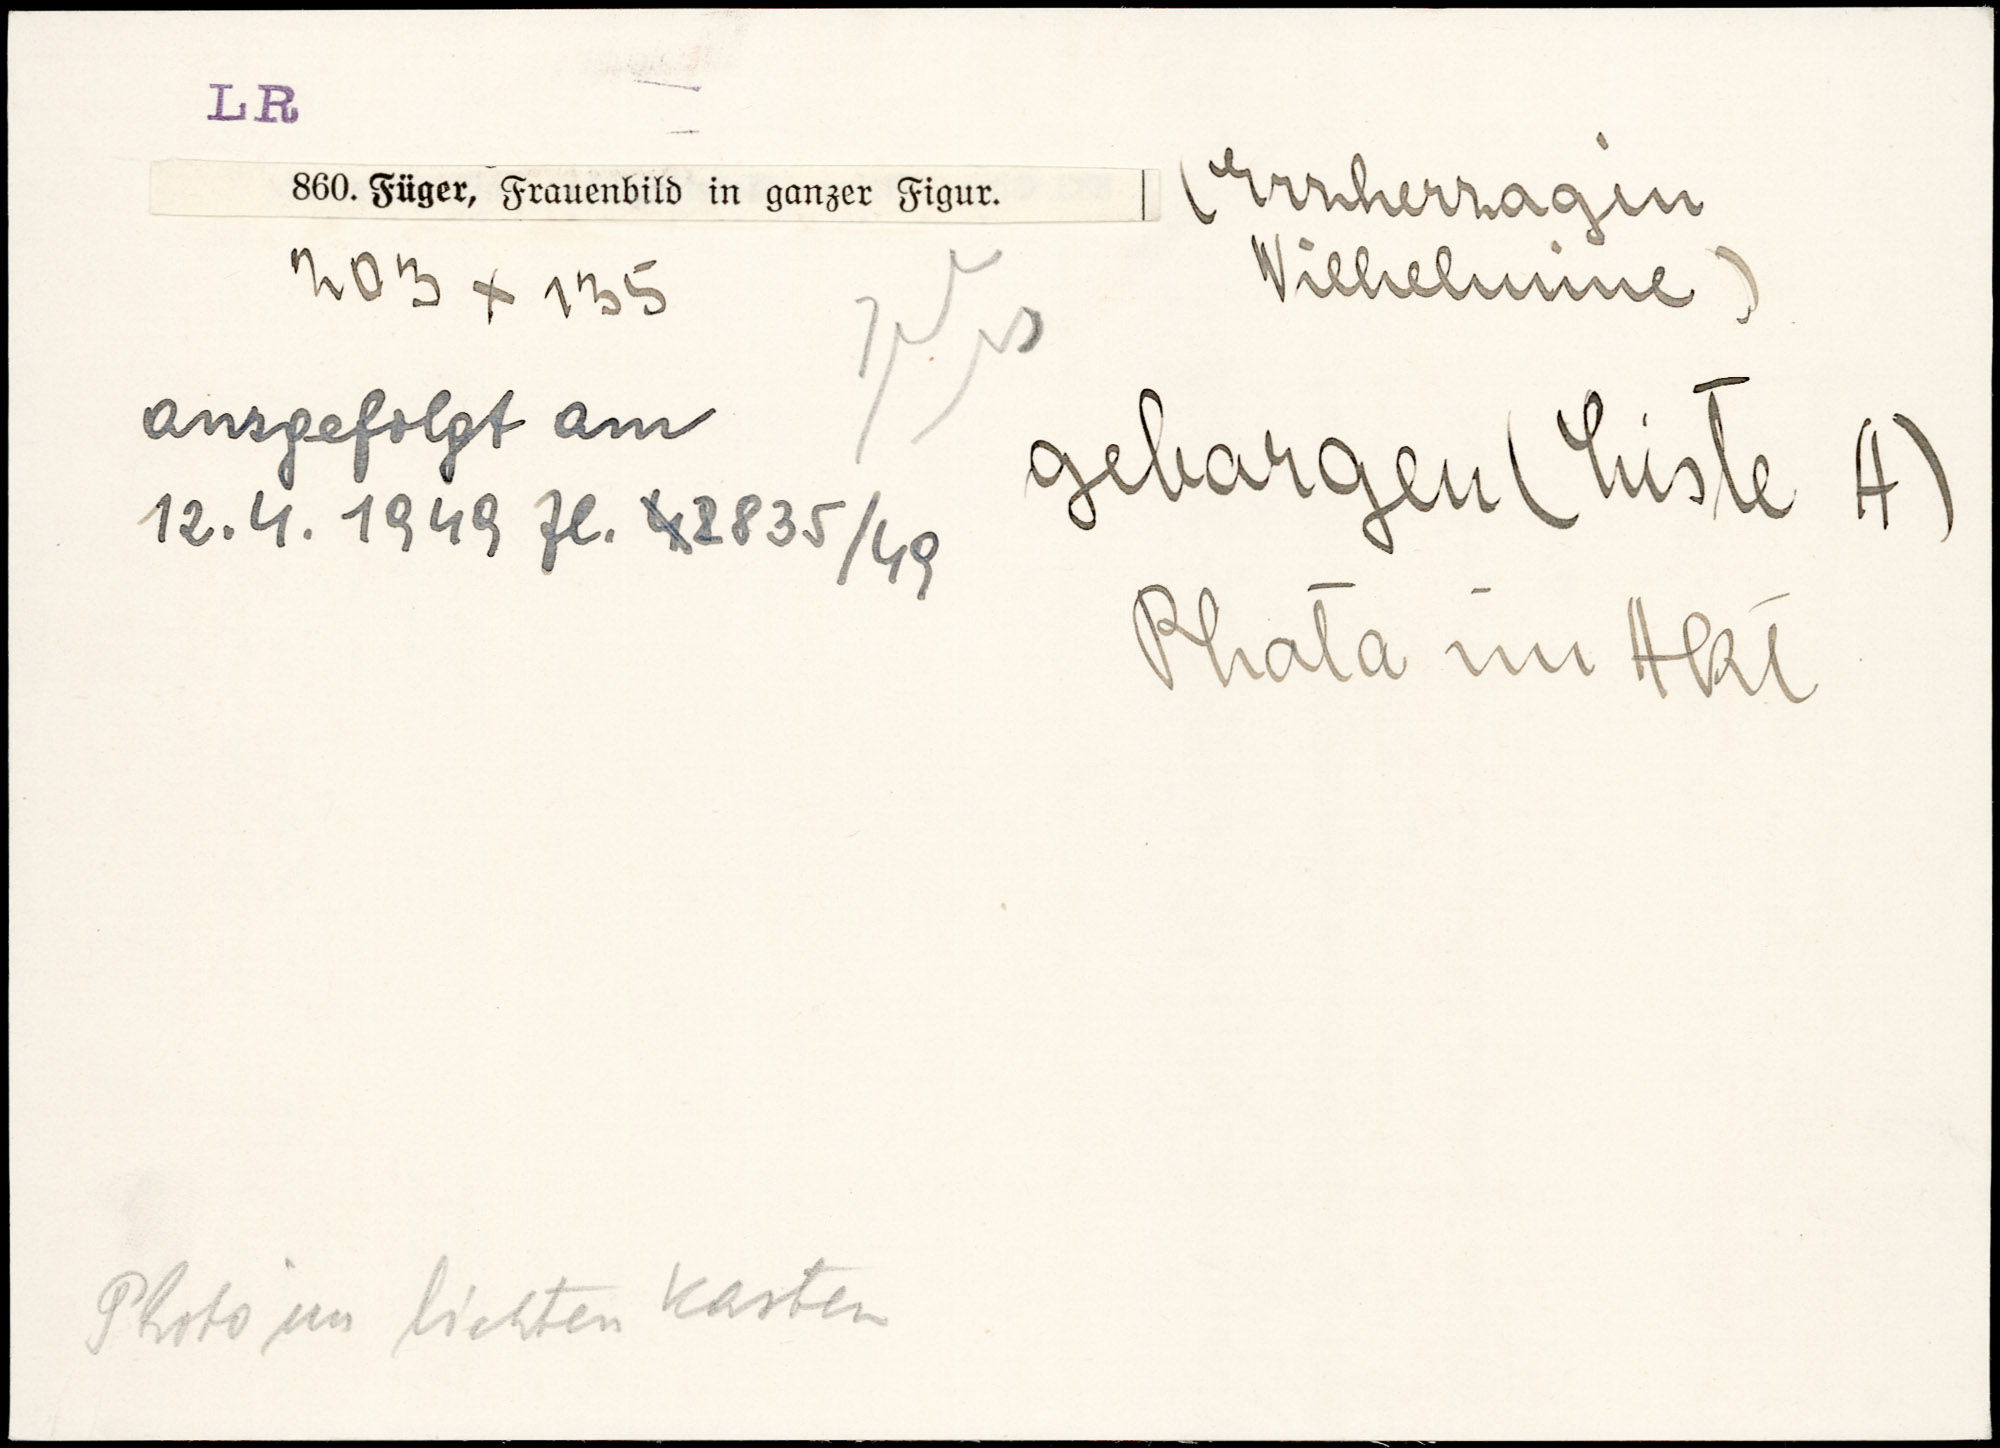 LR
860. Füger, Frauenbild in ganzer Figur.
(Erzherzogin
Wilhelmine)
203 x 135
ausgefolgt am
12.4.1949 Zl. 2835/49
geborgen (Liste A)
Photo im Akt
Photo im lichten Kasten